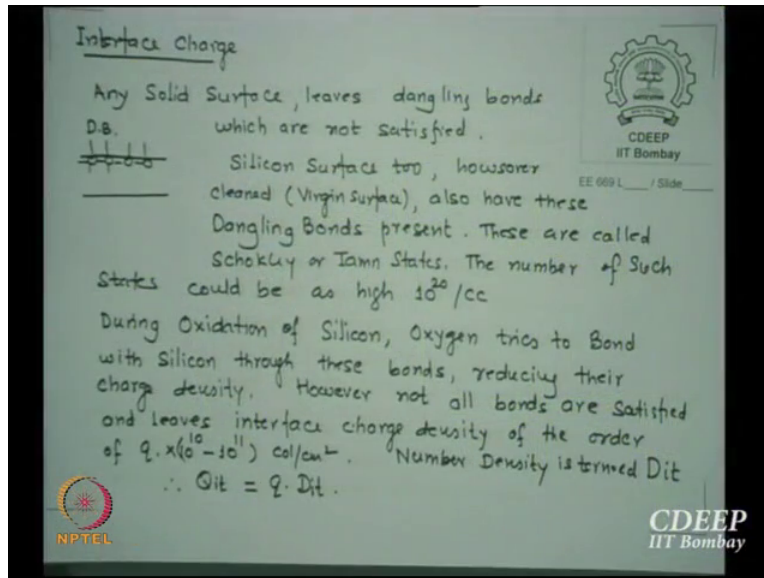 Interface Charge
Any Solid Surface, leaves dangling bonds
D.B. which are not satisfied.
Silicon Surface too, howsoever
cleaned (Virgin Surface), also have these
Dangling Bonds present. These are called
Schokley or Tamn States. The number of Such
States could be as high 10²⁰/cc
During Oxidation of Silicon, Oxygen tries to Bond
with Silicon through these bonds, reducing their
charge density. However not all bonds are satisfied
and leaves interface charge density of the order
of q.x(10¹⁰ - 10¹¹) col/cm². Number Density is termed Dit
∴ Qit = q. Dit.
CDEEP
IIT Bombay
EE 669 L____ / Slide____
NPTEL
CDEEP
IIT Bombay